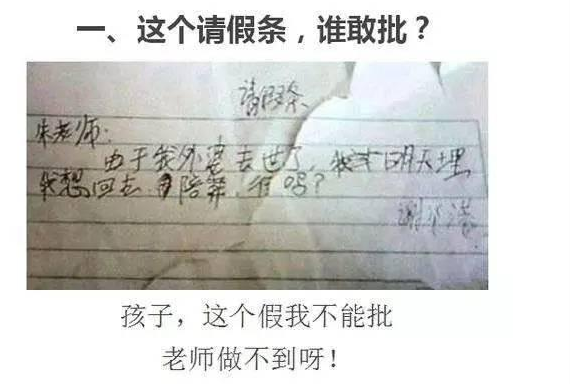 一、这个请假条，谁敢批？
请假条
朱老师：
由于我外婆去世了，我才明天埋
我想回去陪葬，行吗？
孩子，这个假我不能批
老师做不到呀！